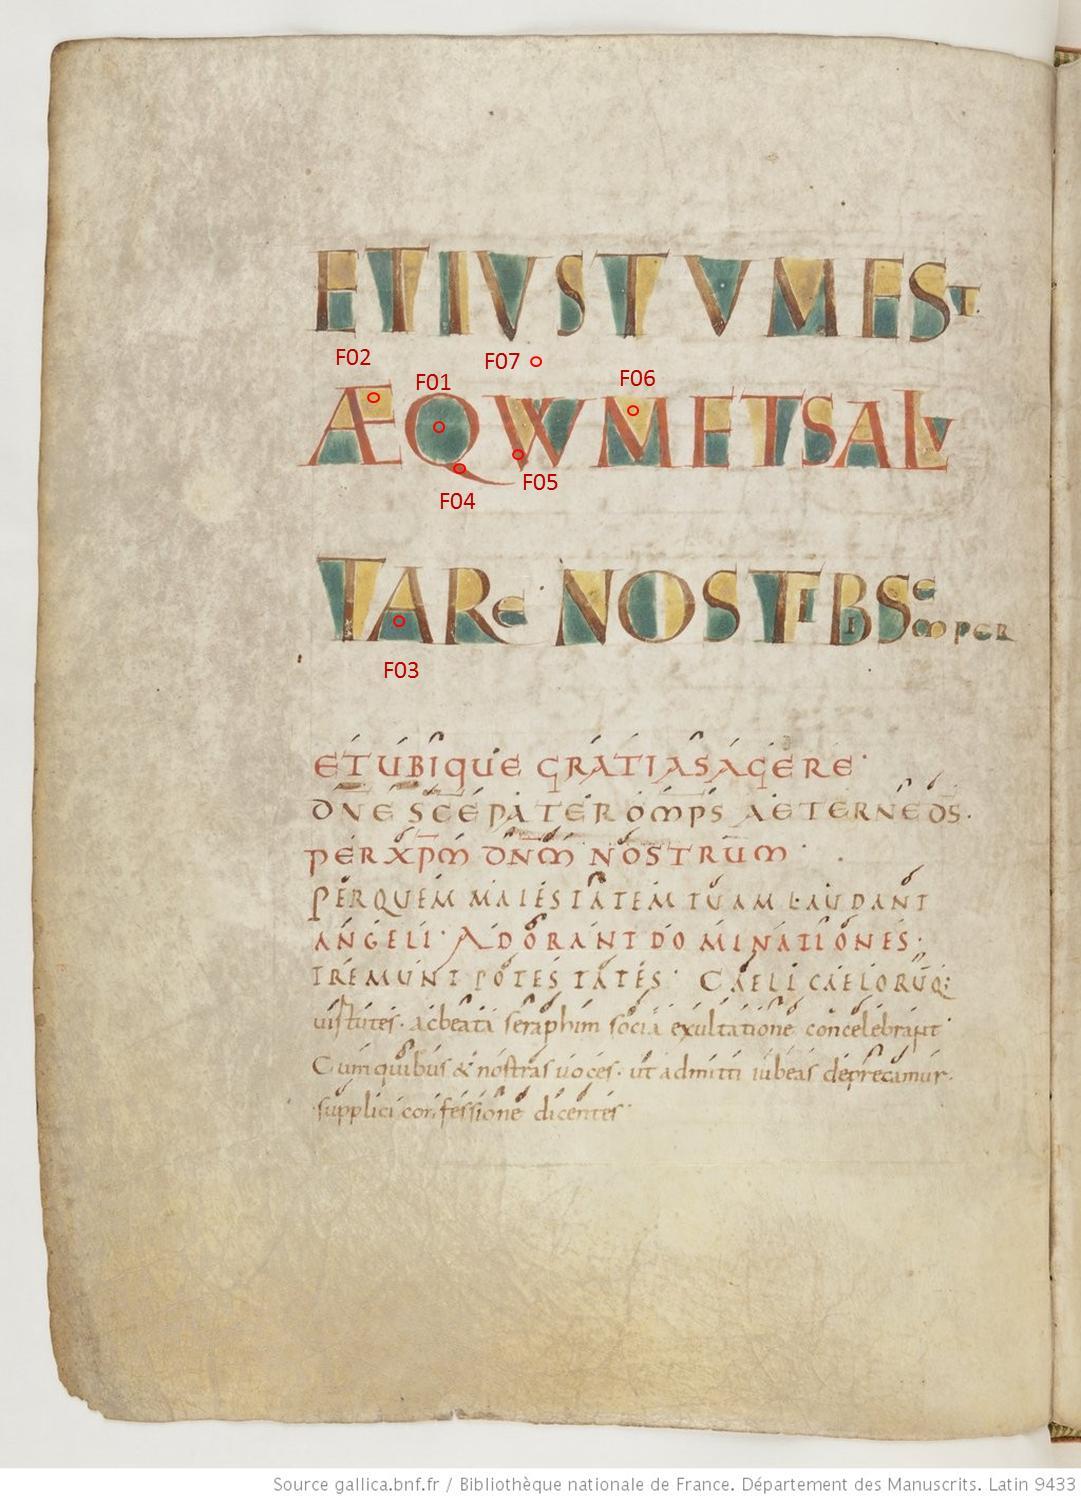 ETIVSTVMEST
F02 F01 F07 F06
ÆQVVMETSALV
F04 F05
TARE NOSTRIBISEMPER
F03
ETUBIQUE GRATIASAGERE
DNE SCE PATER OMPS AETERNE DS.
PER XPM DNM NOSTRUM
PERQUEM MAIESTATEM TUAM LAUDANT
ANGELI· ADORANT DOMINATIONES·
TREMUNT POTESTATES· CAELI CAELORUQ:
uirtutes· acbeata seraphim socia exultatione concelebrant
Cumquibus & nostras uoces· ut admitti iubeas deprecamur·
supplici confessione dicentes·
Source gallica.bnf.fr / Bibliothèque nationale de France. Département des Manuscrits. Latin 9433